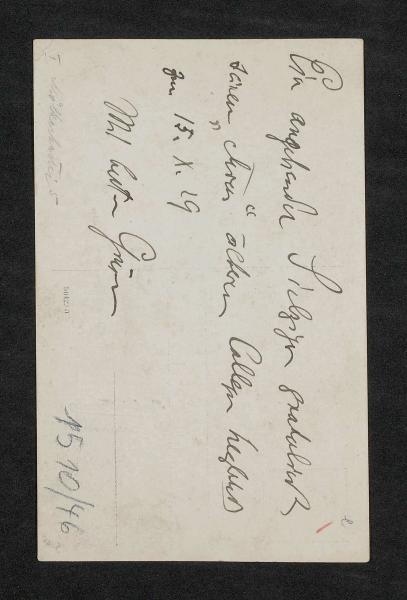 Ein angehender Siebziger gratuliert
seinem etwas älteren Collegen herzlichst
zum 15. X. 29
Mit besten Grüßen
15 10/46